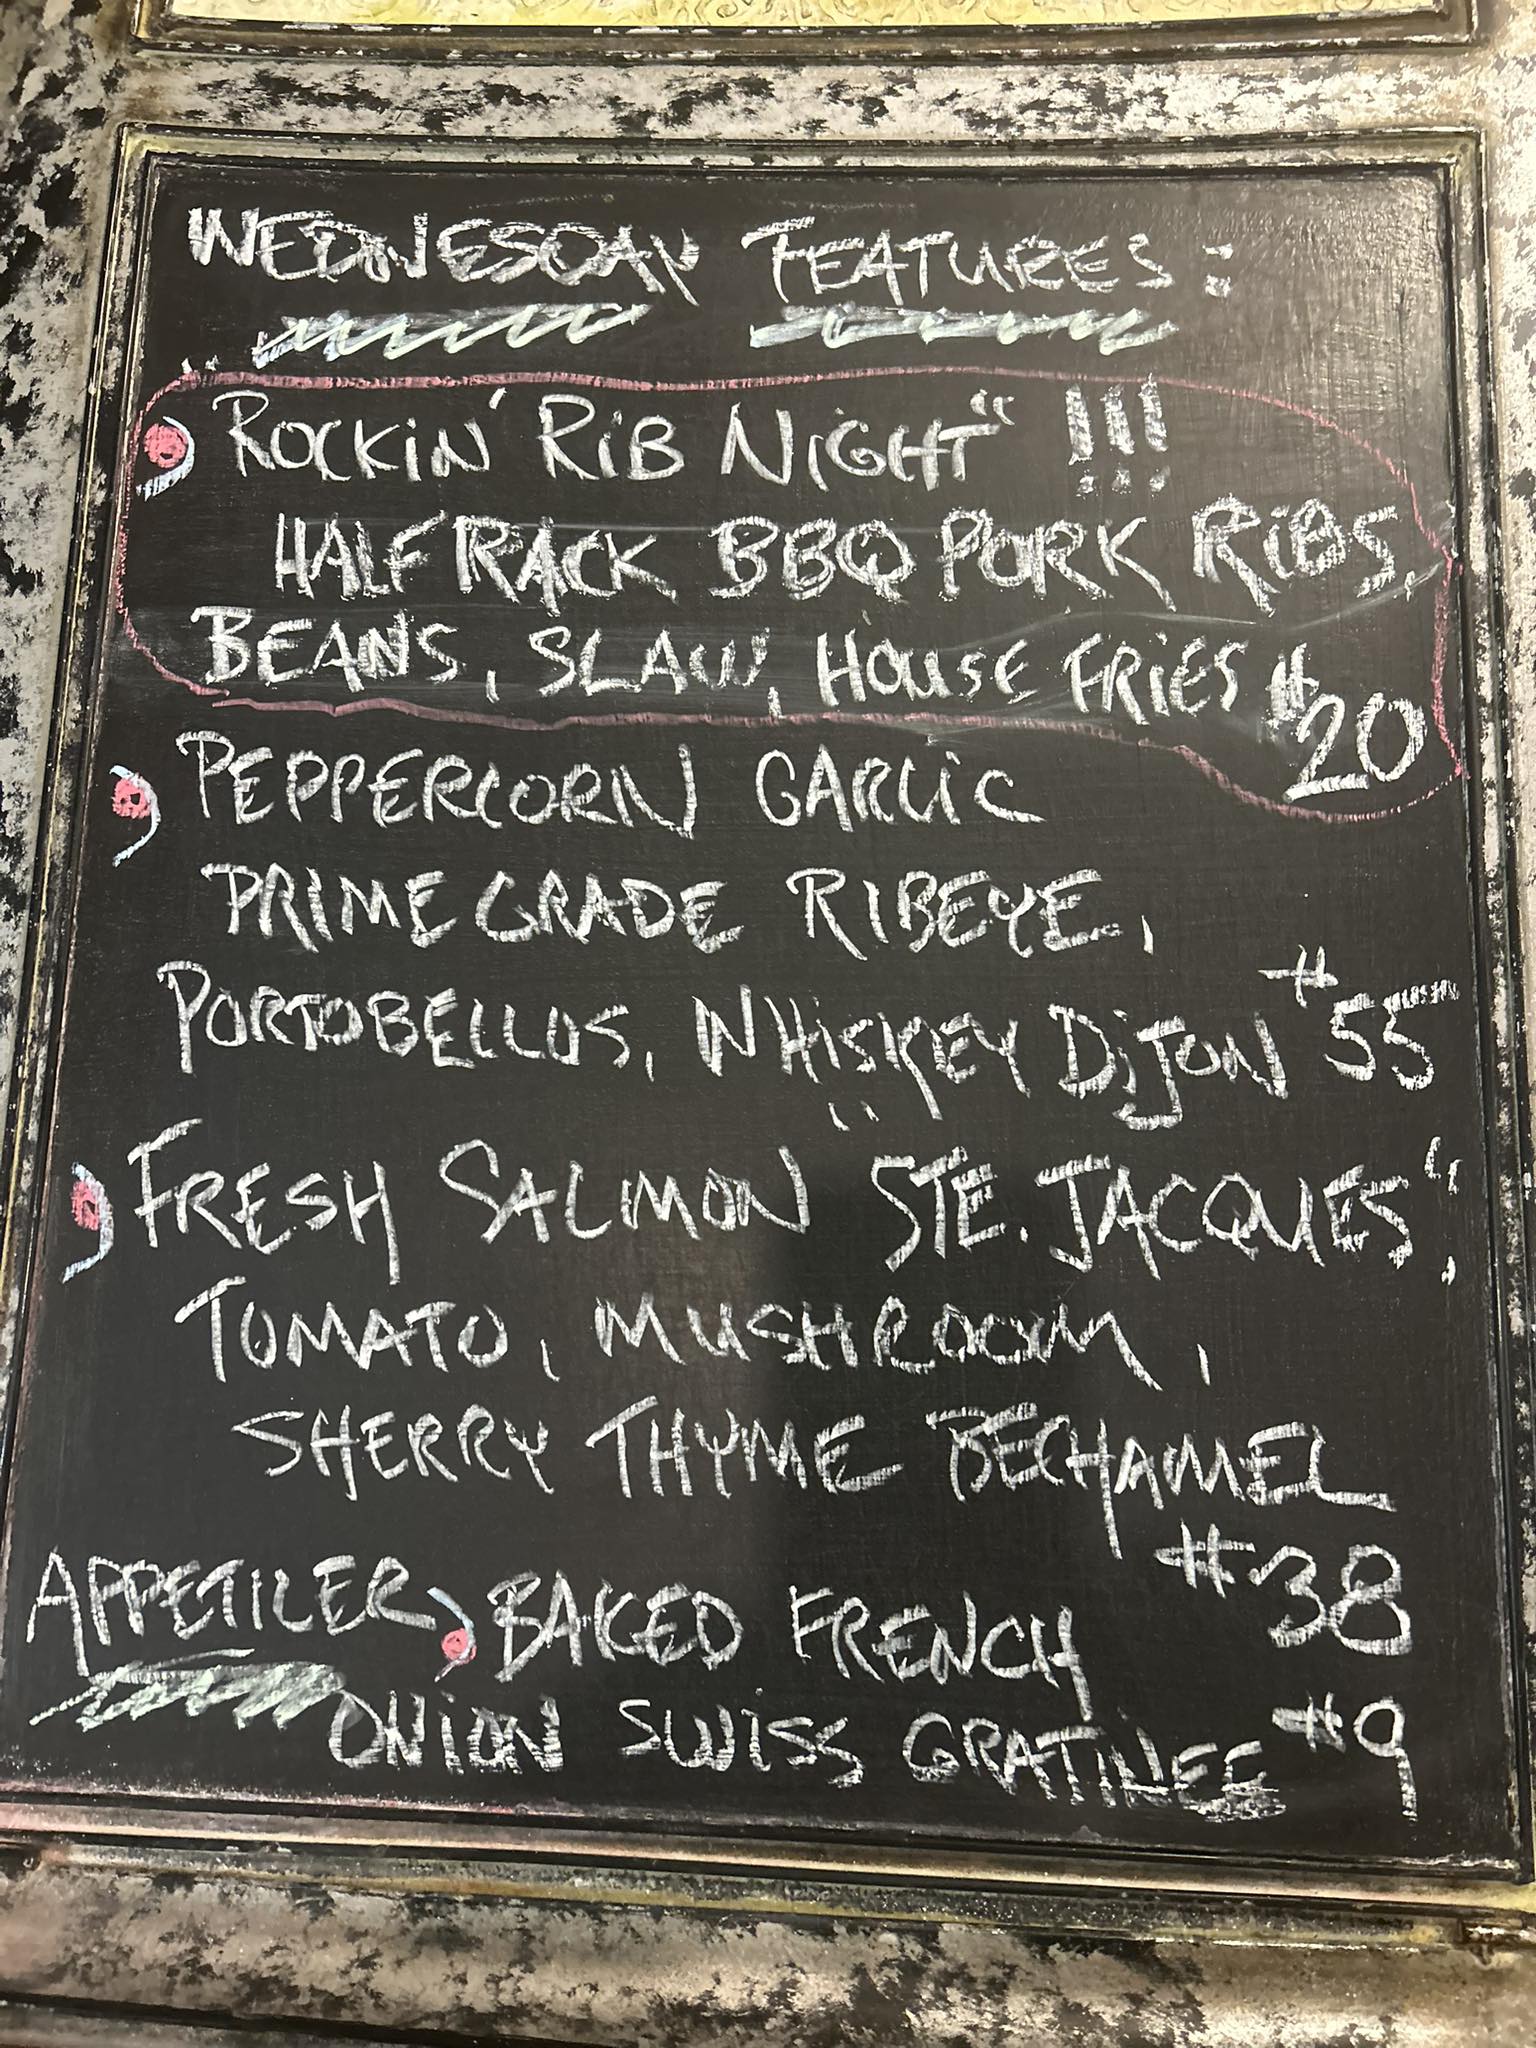 WEDNESDAY FEATURES:
"ROCKIN' RIB NIGHT" !!!
HALF RACK BBQ PORK RIBS,
BEANS, SLAW, HOUSE FRIES $20
PEPPERCORN GARLIC
PRIME GRADE RIBEYE,
PORTOBELLOS, WHISKEY DIJON $55
FRESH SALMON "STE. JACQUES",
TOMATO, MUSHROOM,
SHERRY THYME BECHAMEL
$38
APPETIZER BAKED FRENCH
ONION SWISS GRATINEE $9